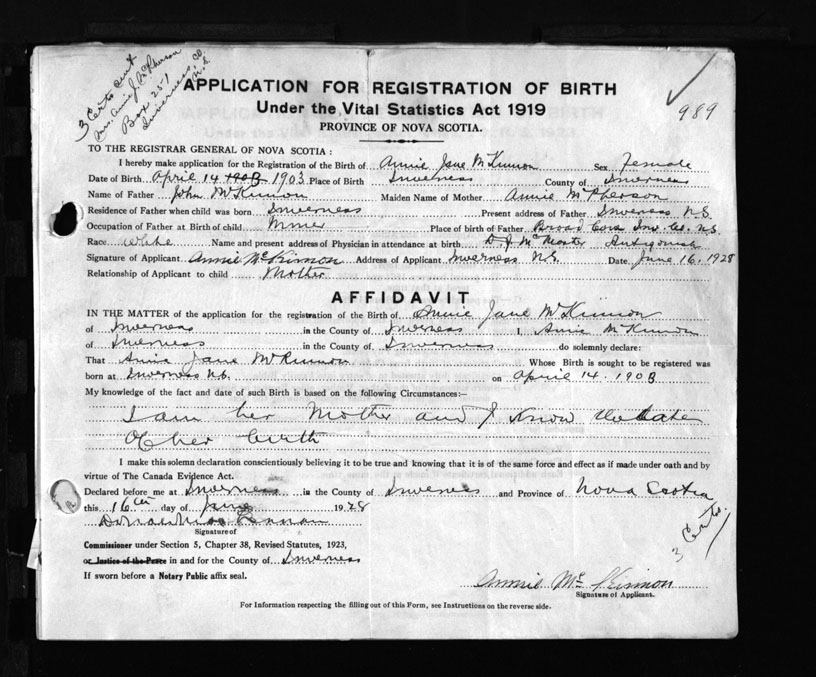 3 Certs sent
Mrs. Annie J. McPherson
Box 251
Inverness, Co.
N.S.
989
APPLICATION FOR REGISTRATION OF BIRTH
Under the Vital Statistics Act 1919
PROVINCE OF NOVA SCOTIA.
TO THE REGISTRAR GENERAL OF NOVA SCOTIA :
I hereby make application for the Registration of the Birth of Annie Jane McKinnon Sex Female
Date of Birth April 14 1903 1903 Place of Birth Inverness County of Inverness
Name of Father John McKinnon Maiden Name of Mother Annie McPherson
Residence of Father when child was born Inverness Present address of Father Inverness N.S.
Occupation of Father at Birth of child Miner Place of birth of Father Broad Cove Inv. Co. N.S.
Race white Name and present address of Physician in attendance at birth D. J. McMaster Antigonish
Signature of Applicant Annie McKinnon Address of Applicant Inverness N.S. Date June 16, 1928
Relationship of Applicant to child Mother
AFFIDAVIT
IN THE MATTER of the application for the registration of the Birth of Annie Jane McKinnon
of Inverness in the County of Inverness I, Annie McKinnon
of Inverness in the County of Inverness do solemnly declare:
That Annie Jane McKinnon Whose Birth is sought to be registered was
born at Inverness N.S. on April 14. 1903
My knowledge of the fact and date of such Birth is based on the following Circumstances:—
I am her Mother and I Know the date
Of her birth
I make this solemn declaration conscientiously believing it to be true and knowing that it is of the same force and effect as if made under oath and by
virtue of The Canada Evidence Act.
Declared before me at Inverness in the County of Inverness and Province of Nova Scotia
this 16th day of June 1928
Signature of
Commissioner under Section 5, Chapter 38, Revised Statutes, 1923,
or Justice of the Peace in and for the County of Inverness
If sworn before a Notary Public affix seal.
3 Certs.
Annie McKinnon
Signature of Applicant.
For Information respecting the filling out of this Form, see Instructions on the reverse side.